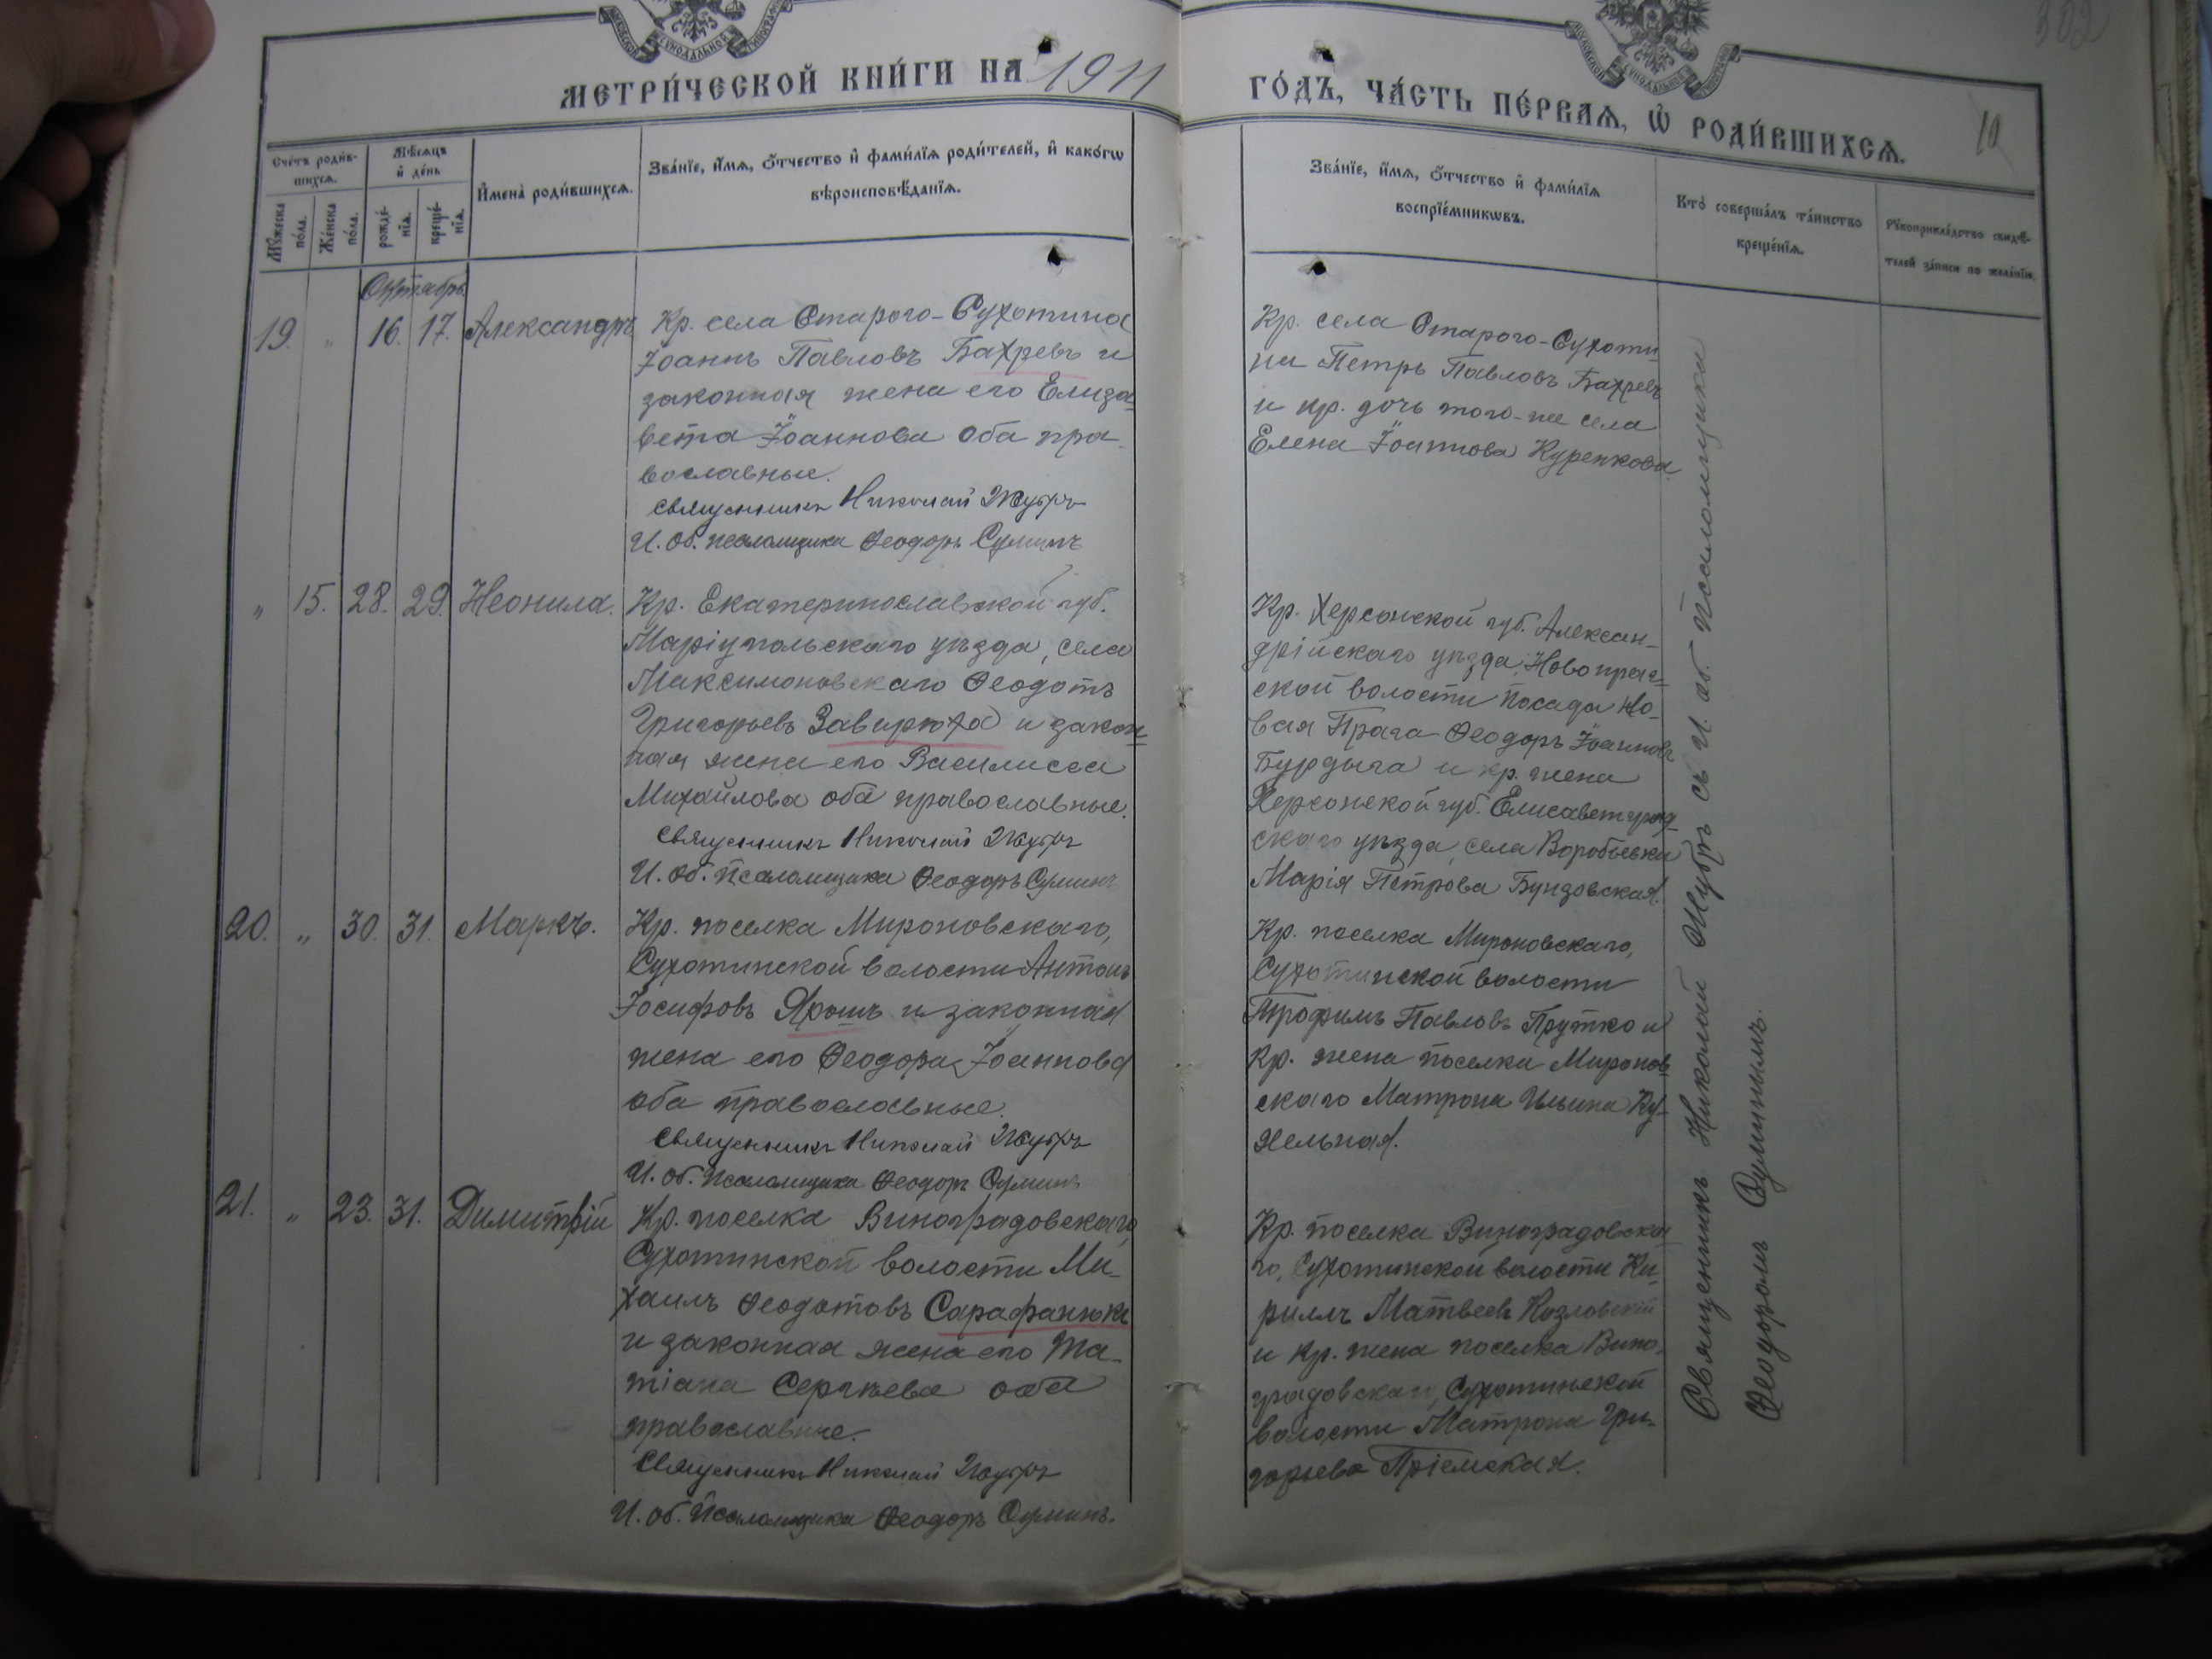 МЕТРИ́ЧЕСКОЙ КНИ́ГИ НА 1911
ГО́ДЪ, ЧА́СТЬ ПЕ́РВАѦ, Ѡ РОДИ́ВШИХСѦ.
302
10
Сче́тъ роди́в-
шихсѧ.
Мѣ́сѧцъ
и҆ де́нь
Мꙋ́жеска
по́ла.
Же́нска
по́ла.
рожде́-
нїѧ.
креще́-
нїѧ.
И҆мена̀ роди́вшихсѧ.
Зва́нїе, и҆́мѧ, ѻ҆́тчество и҆ фами́лїѧ роди́телей, и҆ како́гѡ
вѣроисповѣ́данїѧ.
Зва́нїе, и҆́мѧ, ѻ҆́тчество и҆ фами́лїѧ
воспрїе́мникѡвъ.
Кто̀ соверша́лъ та́инство
креще́нїѧ.
Рꙋкоприкла́дство свидѣ́-
телей за́писи по жела́нїю.
Октябрь.
19. " 16. 17. Александръ
Кр. села Старого-Сухотина
Іоаннъ Павловъ Бахревъ и
законная жена его Елиза-
вета Іоаннова оба пра-
вославные.
Священникъ Николай Жубръ
И. об. псаломщика Ѳеодоръ Суминъ
Кр. села Старого-Сухоти-
на Петръ Павловъ Бахревъ
и кр. дочь того-же села
Елена Іоаннова Куренкова.
" 15. 28. 29. Неонила.
Кр. Екатеринославской губ.
Маріупольскаго уѣзда, села
Максимоновскаго Ѳеодотъ
Григорьевъ Завирюха и закон-
ная жена его Василисса
Михайлова оба православные.
Священникъ Николай Жубръ
И. об. псаломщика Ѳеодоръ Суминъ
Кр. Херсонской губ. Алексан-
дрійскаго уѣзда, Новопраг-
ской волости посада Но-
вая Прага Ѳеодоръ Іоанновъ
Бурдыга и кр. жена
Херсонской губ. Елисаветград-
скаго уѣзда, села Воробьевки
Марія Петрова Бундовская.
20. " 30. 31. Маркъ.
Кр. поселка Мироновскаго,
Сухотинской волости Антонъ
Іосифовъ Ярошъ и законная
жена его Ѳеодора Іоаннова
оба православные.
Священникъ Николай Жубръ
И. об. псаломщика Ѳеодоръ Суминъ
Кр. поселка Мироновскаго,
Сухотинской волости
Трофимъ Павловъ Прутко и
кр. жена поселка Миронов-
скаго Матрона Ильина Ку-
жельная.
21. " 23. 31. Димитрій
Кр. поселка Виноградовскаго,
Сухотинской волости Ми-
хаилъ Ѳеодотовъ Сарафанюкъ
и законная жена его Та-
тіана Сергѣева оба
православные.
Священникъ Николай Жубръ
И. об. псаломщика Ѳеодоръ Суминъ.
Кр. поселка Виноградовска-
го, Сухотинской волости Ки-
риллъ Матвеевъ Козловскій
и кр. жена поселка Вино-
градовскаго, Сухотинской
волости Матрона Гри-
горьева Пріемская.
Священникъ Николай Жубръ съ И. об. псаломщика
Ѳеодоромъ Суминымъ.